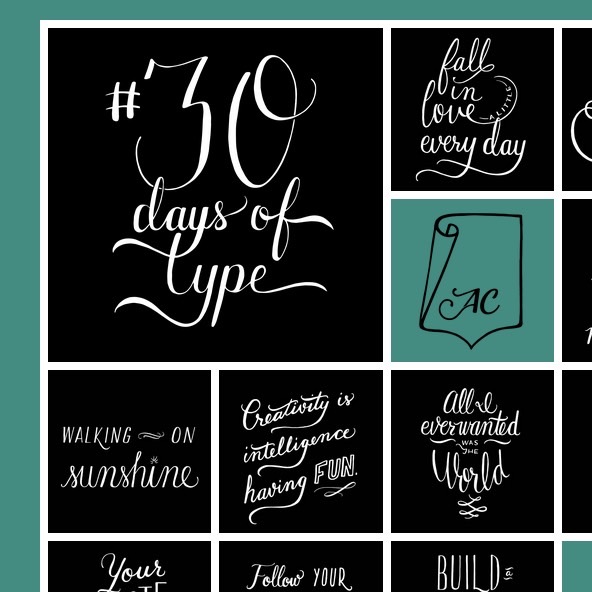 #30
days of
type
fall
in
love
A LITTLE
every day
AC
WALKING ~ ON
sunshine
Creativity is
intelligence
having FUN.
All I
ever wanted
WAS
THE
World
Your
Follow YOUR
BUILD a